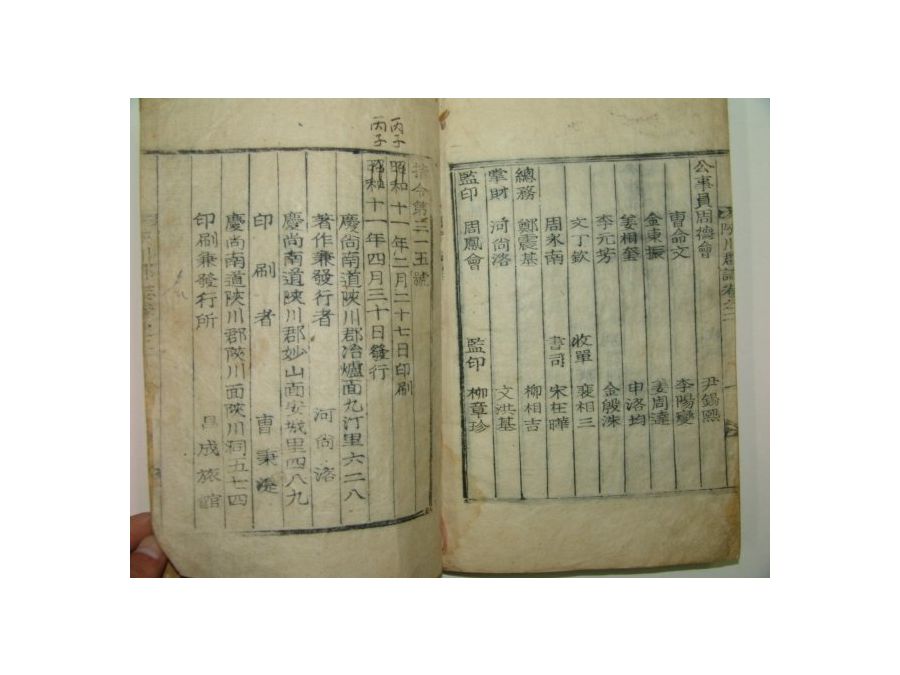 陜川郡誌卷之二
公事員 周德會 尹錫熙
曺命文 李陽燮
金東振 姜周達
姜相奎 申洛均
李元芳 金殷洙
文丁欽 收單 裵相三
周永南 書司 宋在曄
總務 鄭震基 柳相吉
掌財 河尙洛 文洪基
監印 周鳳會 監印 柳章珍
丙子
丙子
指令第二一五號
昭和十一年二月二十七日印刷
昭和十一年四月三十日發行
慶尙南道陜川郡冶爐面九汀里六二八
著作兼發行者 河尙洛
慶尙南道陜川郡妙山面安城里四八九
印刷者 曺秉
慶尙南道陜川郡陜川面陜川洞五七四
印刷兼發行所 成旅館